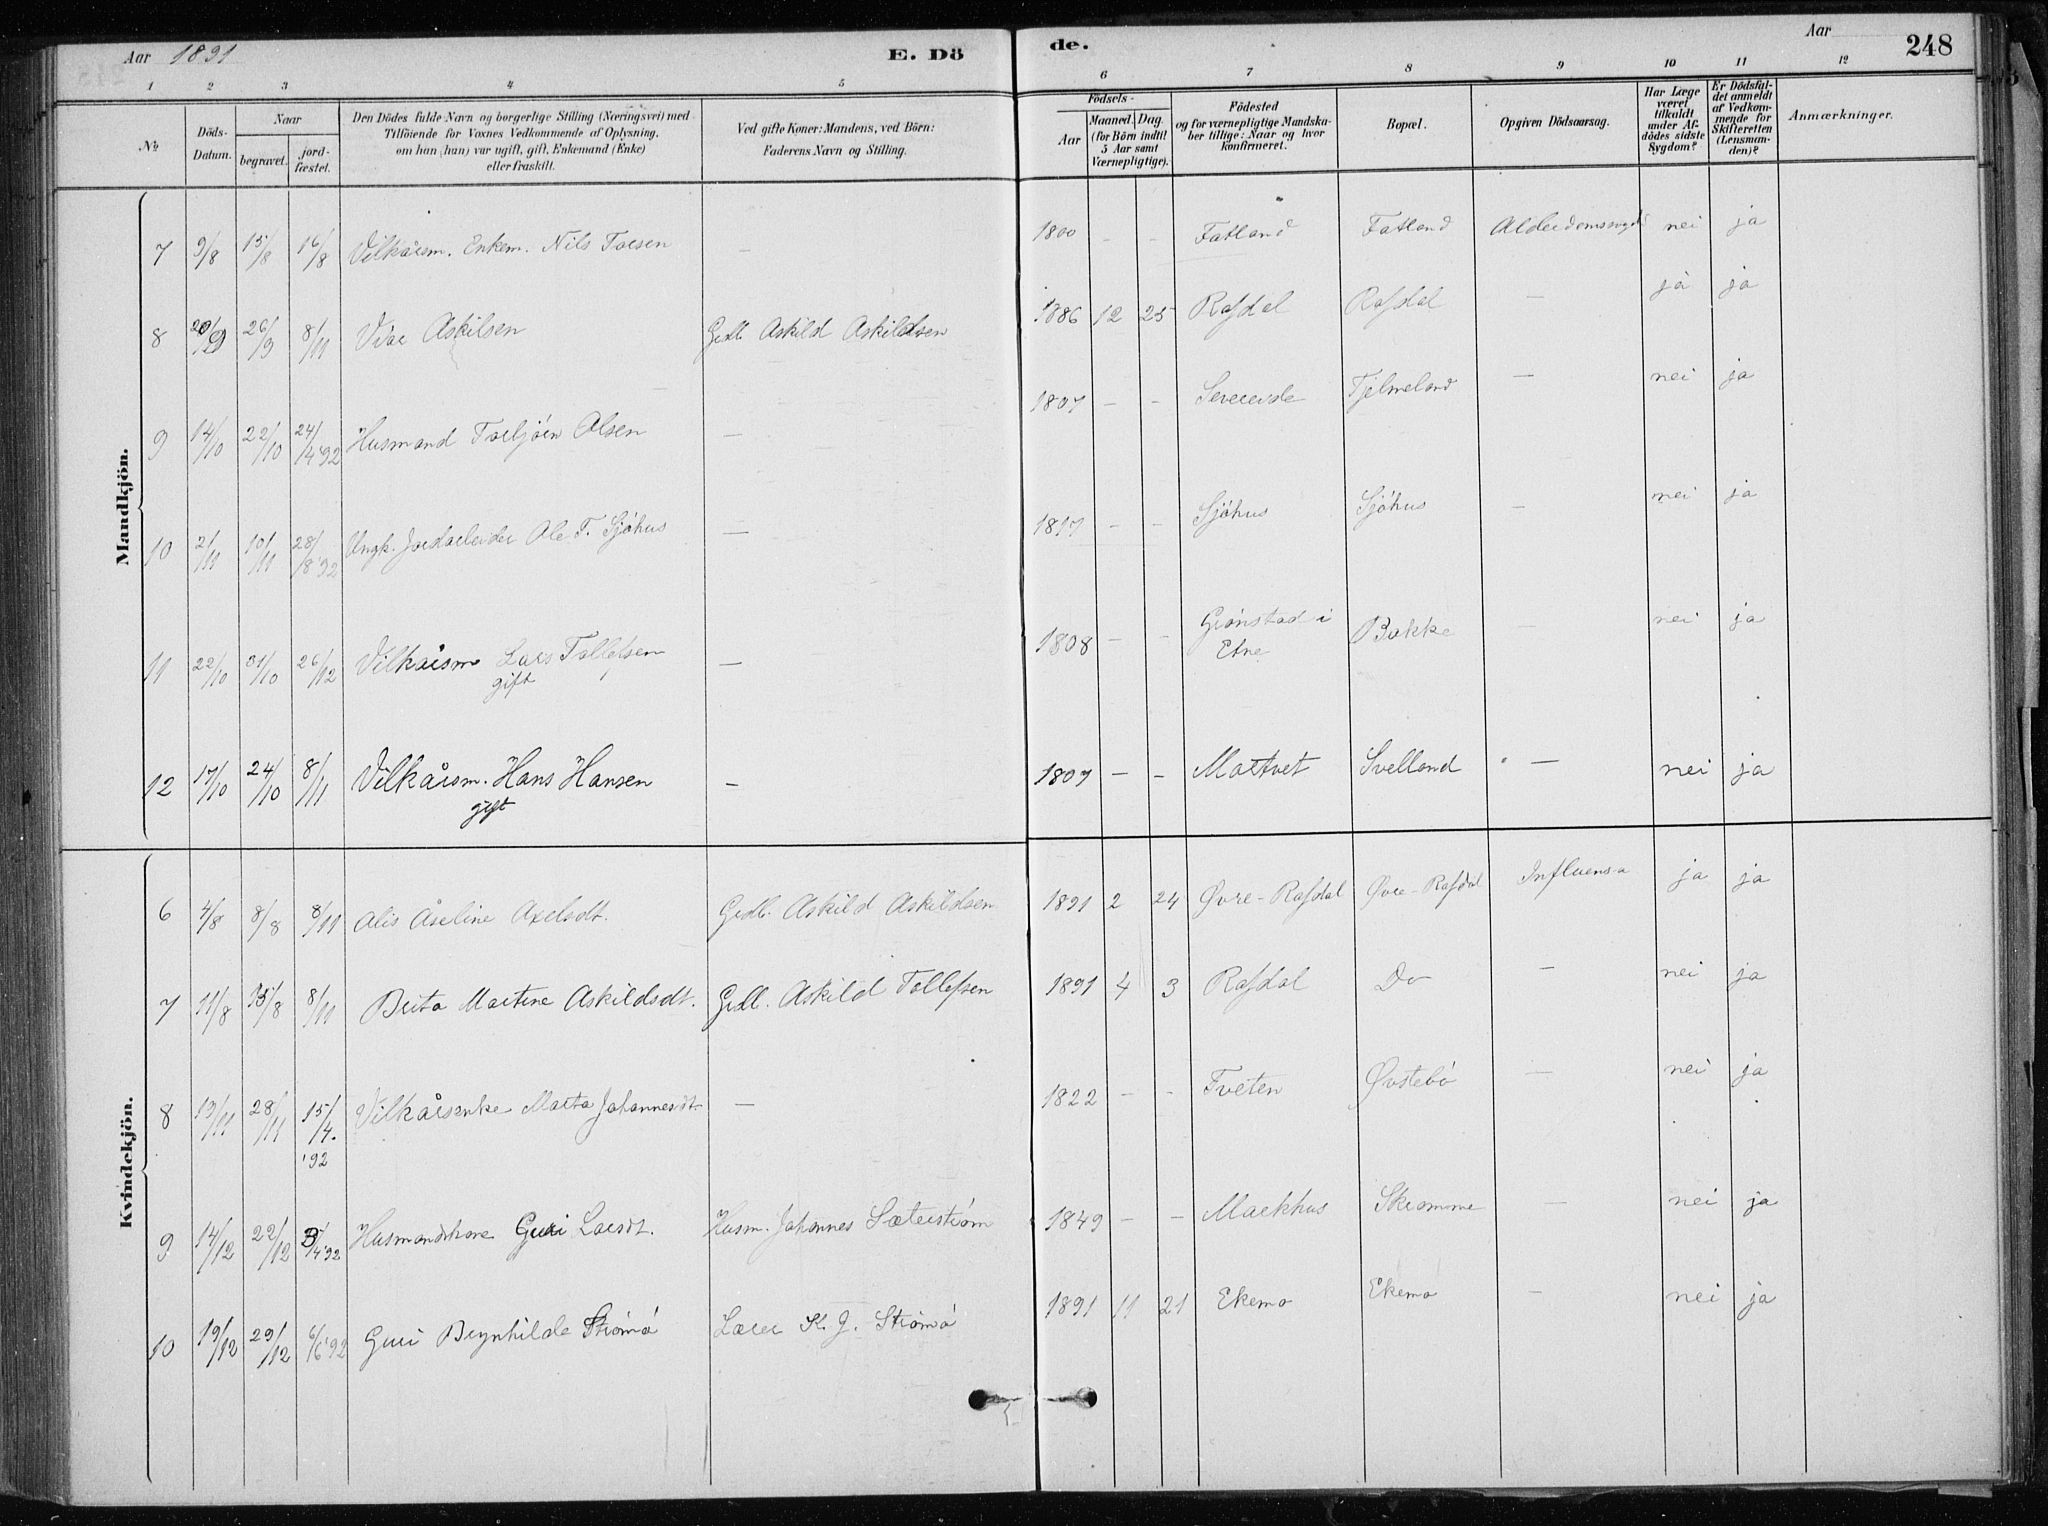 Aar 1891 E. Dö de. Aar 248
1 2 3 4 5 6 7 8 9 10 11 12
№
Döds-Datum.
Naar
begravet.
jord-fæstet.
Den Dödes fulde Navn og borgerlige Stilling (Næringsvei) med
Tilföiende for Voxnes Vedkommende af Oplysning,
om han (hun) var ugift, gift, Enkemand (Enke)
eller fraskilt.
Ved gifte Koner: Mandens, ved Börn:
Faderens Navn og Stilling.
Födsels-
Aar
Maaned. Dag.
(for Börn indtil
5 Aar samt
Værnepligtige).
Födested
og for værnepligtige Mandska-
ber tillige: Naar og hvor
konfirmeret.
Bopæl.
Opgiven Dödsaarsag.
Har Læge
været
tilkaldt
under Af-
dödes sidste
Sygdom?
Er Dödsfal-
det anmeldt
af Vedkom-
mende for
Skifteretten
(Lensman-
den)?
Anmærkninger.
Mandkjön.
7 9/8 15/8 16/8 Vilkårsm. Enkem. Nils Torsen — 1800 - - Fatland Fatland nei ja
8 20/9 26/9 8/11 Askilsen Grdb. Askild Askildsen 1886 12 25 Rafdal Rafdal — ja ja
9 14/10 22/10 24/4 '92 Husmand Torbjörn Olsen — 1807 - - Tjelmeland — nei ja
10 2/11 10/11 28/8 '92 Ungk. Jordarbeider Ole T. Sjöhus — 1817 - - Sjöhus Sjöhus - nei ja
11 22/10 31/10 26/12 Vilkårsm Lars Tollefsen — 1808 - - Grönstad i Bakke — nei ja
gift Etne
12 17/10 24/10 8/11 Vilkårsm. Hans Hansen — 1807 - - Martvet Svelland — nei ja
gift
Kvindekjön.
6 4/8 8/8 8/11 Alis Åseline Axelsdt. Grdb. Askild Askildsen 1891 2 24 Øvre-Rafdal Øvre-Rafdal Influensa ja ja
7 11/8 15/8 8/11 Brita Martine Askildsdt. Grdb. Askild Tollefsen 1891 4 3 Rafdal Do — nei ja
8 13/11 28/11 15/4. Vilkårsenke Marta Johannesdt — 1822 - - Tveten Øvstebö — nei ja
'92
9 14/12 22/12 3/4 '92 Husmandskone Guri Larsdt. Husm. Johannes Sæterström 1849 - - Markhus Skromme — nei ja
10 19/12 29/12 6/6 '92 Guri Brynhilde Strömö Lærer K. J. Strömö 1891 11 21 Ekemo Ekemo — nei ja